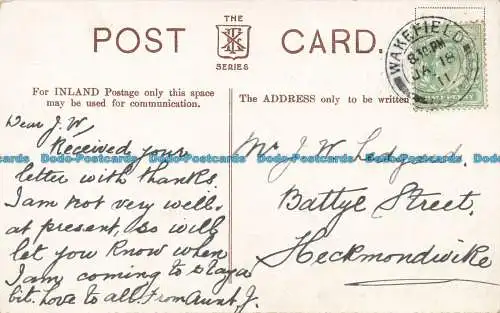 POST CARD.
THE
SERIES
For INLAND Postage only this space
may be used for communication.
The ADDRESS only to be written
WAKEFIELD
8.10 PM
JA 18
11
Dear J. W,
Received your
letter with thanks.
I am not very well
at present, so will
let you know when
I am coming to stay a
bit. Love to all. From Aunt J.
Mr J. W. Ledgeard
Battye Street,
Heckmondwike
Postcards Data-Postcards Data-Postcards Data-Postcards Data-Postcards